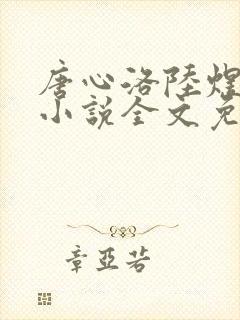 唐心洛陸煌
小說全文免
章亞若